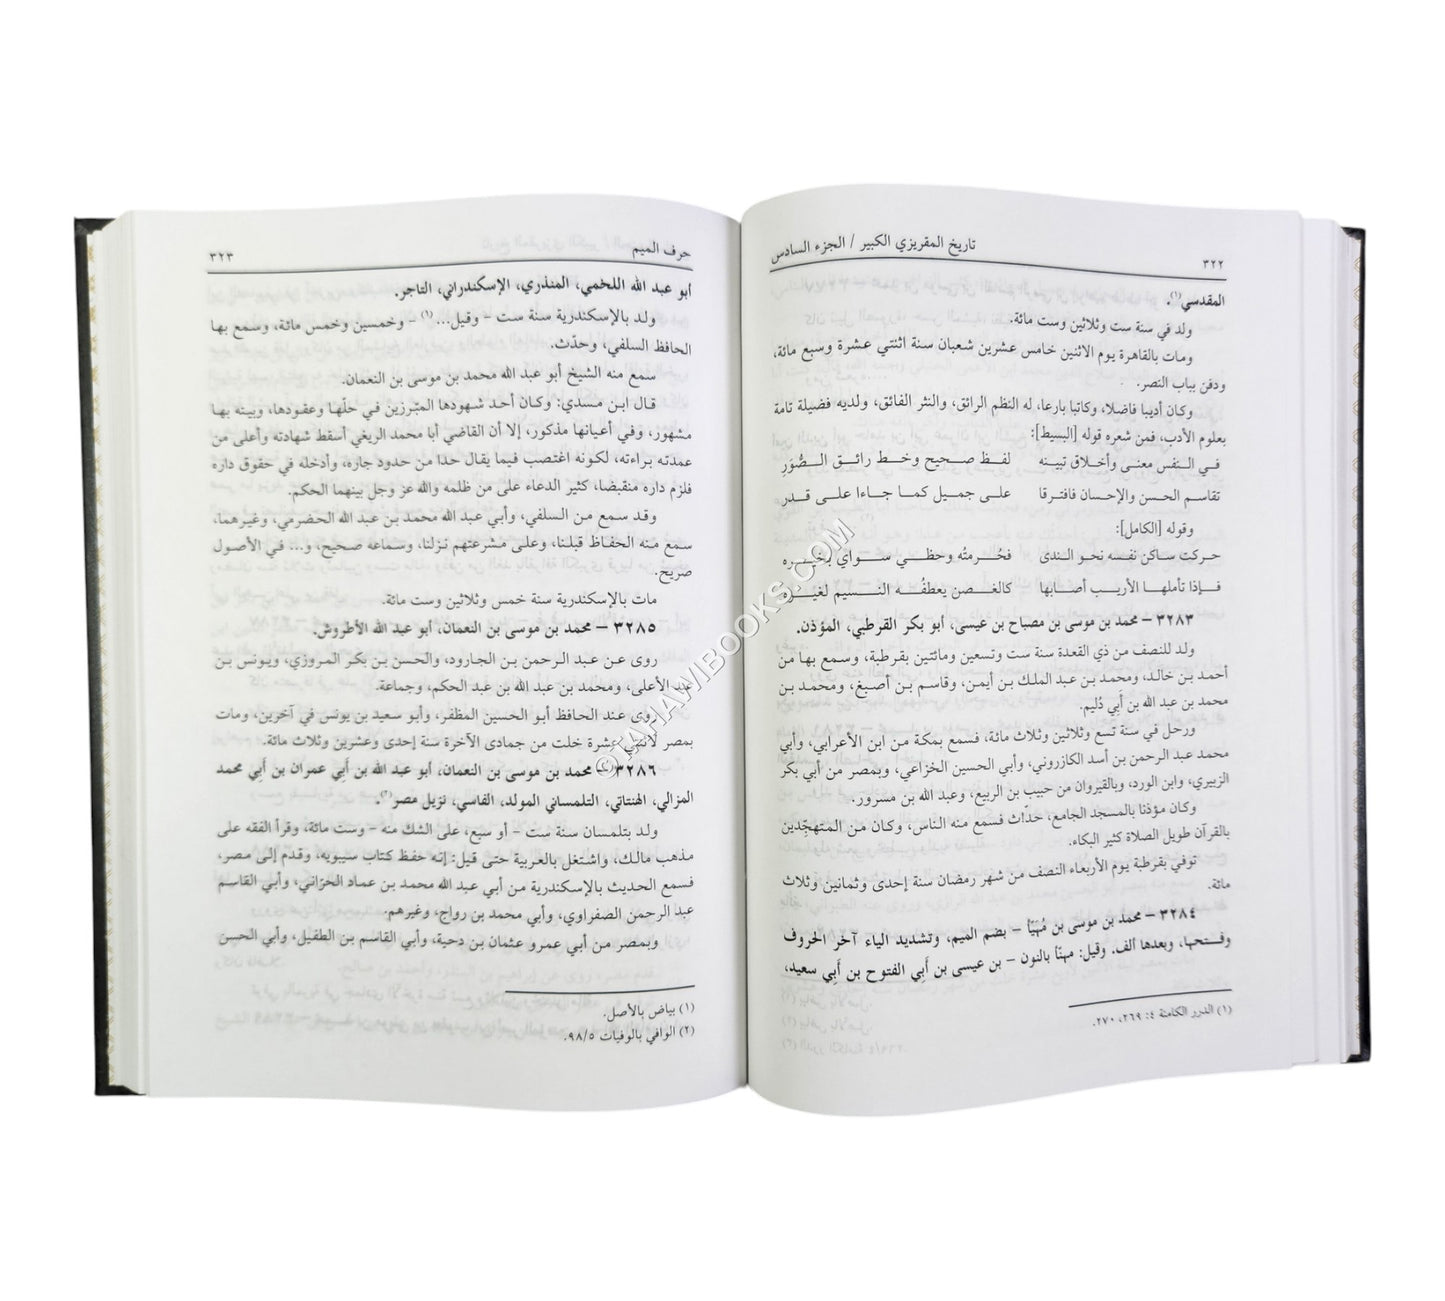 تاريخ المقريزي الكبير / الجزء السادس
٣٢٢
المقدسي(١).
ولد في سنة ست وثلاثين وست مائة.
ومات بالقاهرة يوم الاثنين خامس عشرين شعبان سنة اثنتي عشرة وسبع مائة،
ودفن بباب النصر.
وكان أديبا فاضلا، وكاتبا بارعا، له النظم الرائق، والنثر الفائق، ولديه فضيلة تامة
بعلوم الأدب، فمن شعره قوله [البسيط]:
في النفس معنى وأخلاق تبينه لفظ صحيح وخط رائق الصُّوَرِ
تقاسم الحسن والإحسان فافترقا على جميل كما جاءا على قدر
وقوله [الكامل]:
حركت ساكن نفسه نحو الندى فحُرمتُه وحظي سواي بخيره
فإذا تأملها الأريب أصابها كالغصن يعطفُه النسيم لغيره
٣٢٨٣ – محمد بن موسى بن مصباح بن عيسى، أبو بكر القرطبي، المؤذن.
ولد للنصف من ذي القعدة سنة ست وتسعين ومائتين بقرطبة، وسمع بها من
أحمد بن خالد، ومحمد بن عبد الملك بن أيمن، وقاسم بن أصبغ، ومحمد بن
محمد بن عبد الله بن أبي دُليم.
ورحل في سنة تسع وثلاثين وثلاث مائة، فسمع بمكة من ابن الأعرابي، وأبي
محمد عبد الرحمن بن أسد الكازروني، وأبي الحسين الخزاعي، وبمصر من أبي بكر
الزبيري، وابن الورد، وبالقيروان من حبيب بن الربيع، وعبد الله بن مسرور.
وكان مؤذنا بالمسجد الجامع، حدّاث فسمع منه الناس، وكان من المتهجّدين
بالقرآن طويل الصلاة كثير البكاء.
توفي بقرطبة يوم الأربعاء النصف من شهر رمضان سنة إحدى وثمانين وثلاث
مائة.
٣٢٨٤ – محمد بن موسى بن مُهَيَّأ – بضم الميم، وتشديد الياء آخر الحروف
وفتحها، وبعدها ألف. وقيل: مهنّا بالنون – بن عيسى بن أبي الفتوح بن أبي سعيد،
(١) الدرر الكامنة ٤: ٢٦٩، ٢٧٠.
حرف الميم
٣٢٣
أبو عبد الله اللخمي، المنذري، الإسكندراني، التاجر.
ولد بالإسكندرية سنة ست – وقيل...(١) – وخمسين وخمس مائة، وسمع بها
الحافظ السلفي، وحدّث.
سمع منه الشيخ أبو عبد الله محمد بن موسى بن النعمان.
قال ابن مسدي: وكان أحد شهودها المبّرزين في حلّها وعقودها، وبيته بها
مشهور، وفي أعيانها مذكور، إلا أن القاضي أبا محمد الريغي أسقط شهادته وأعلى من
عمدته براءته، لكونه اغتصب فيما يقال حدا من حدود جاره، وأدخله في حقوق داره
فلزم داره منقبضا، كثير الدعاء على من ظلمه والله عز وجل بينهما الحكم.
وقد سمع من السلفي، وأبي عبد الله محمد بن عبد الله الحضرمي، وغيرهما،
سمع منه الحفاظ قبلنا، وعلى مشرعتهم نزلنا، وسماعه صحيح، و... في الأصول
صريح.
مات بالإسكندرية سنة خمس وثلاثين وست مائة.
٣٢٨٥ – محمد بن موسى بن النعمان، أبو عبد الله الأطروش.
روى عن عبد الرحمن بن الجارود، والحسن بن بكر المروزي، ويونس بن
عبد الأعلى، ومحمد بن عبد الله بن عبد الحكم، وجماعة.
روى عند الحافظ أبو الحسين المظفر، وأبو سعيد بن يونس في آخرين، ومات
بمصر لاثنتي عشرة خلت من جمادى الآخرة سنة إحدى وعشرين وثلاث مائة.
٣٢٨٦ – محمد بن موسى بن النعمان، أبو عبد الله بن أبي عمران بن أبي محمد
المزالي، الهنتاتي، التلمساني المولد، الفاسي، نزيل مصر(٢).
ولد بتلمسان سنة ست – أو سبع، على الشك منه – وست مائة، وقرأ الفقه على
مذهب مالك، واشتغل بالعربية حتى قيل: إنه حفظ كتاب سيبويه، وقدم إلى مصر،
فسمع الحديث بالإسكندرية من أبي عبد الله محمد بن عماد الحرّاني، وأبي القاسم
عبد الرحمن الصفراوي، وأبي محمد بن رواج، وغيرهم.
وبمصر من أبي عمرو عثمان بن دحية، وأبي القاسم بن الطفيل، وأبي الحسن
(١) بياض بالأصل.
(٢) الوافي بالوفيات ٩٨/٥.
©TAHAWIBOOKS.COM